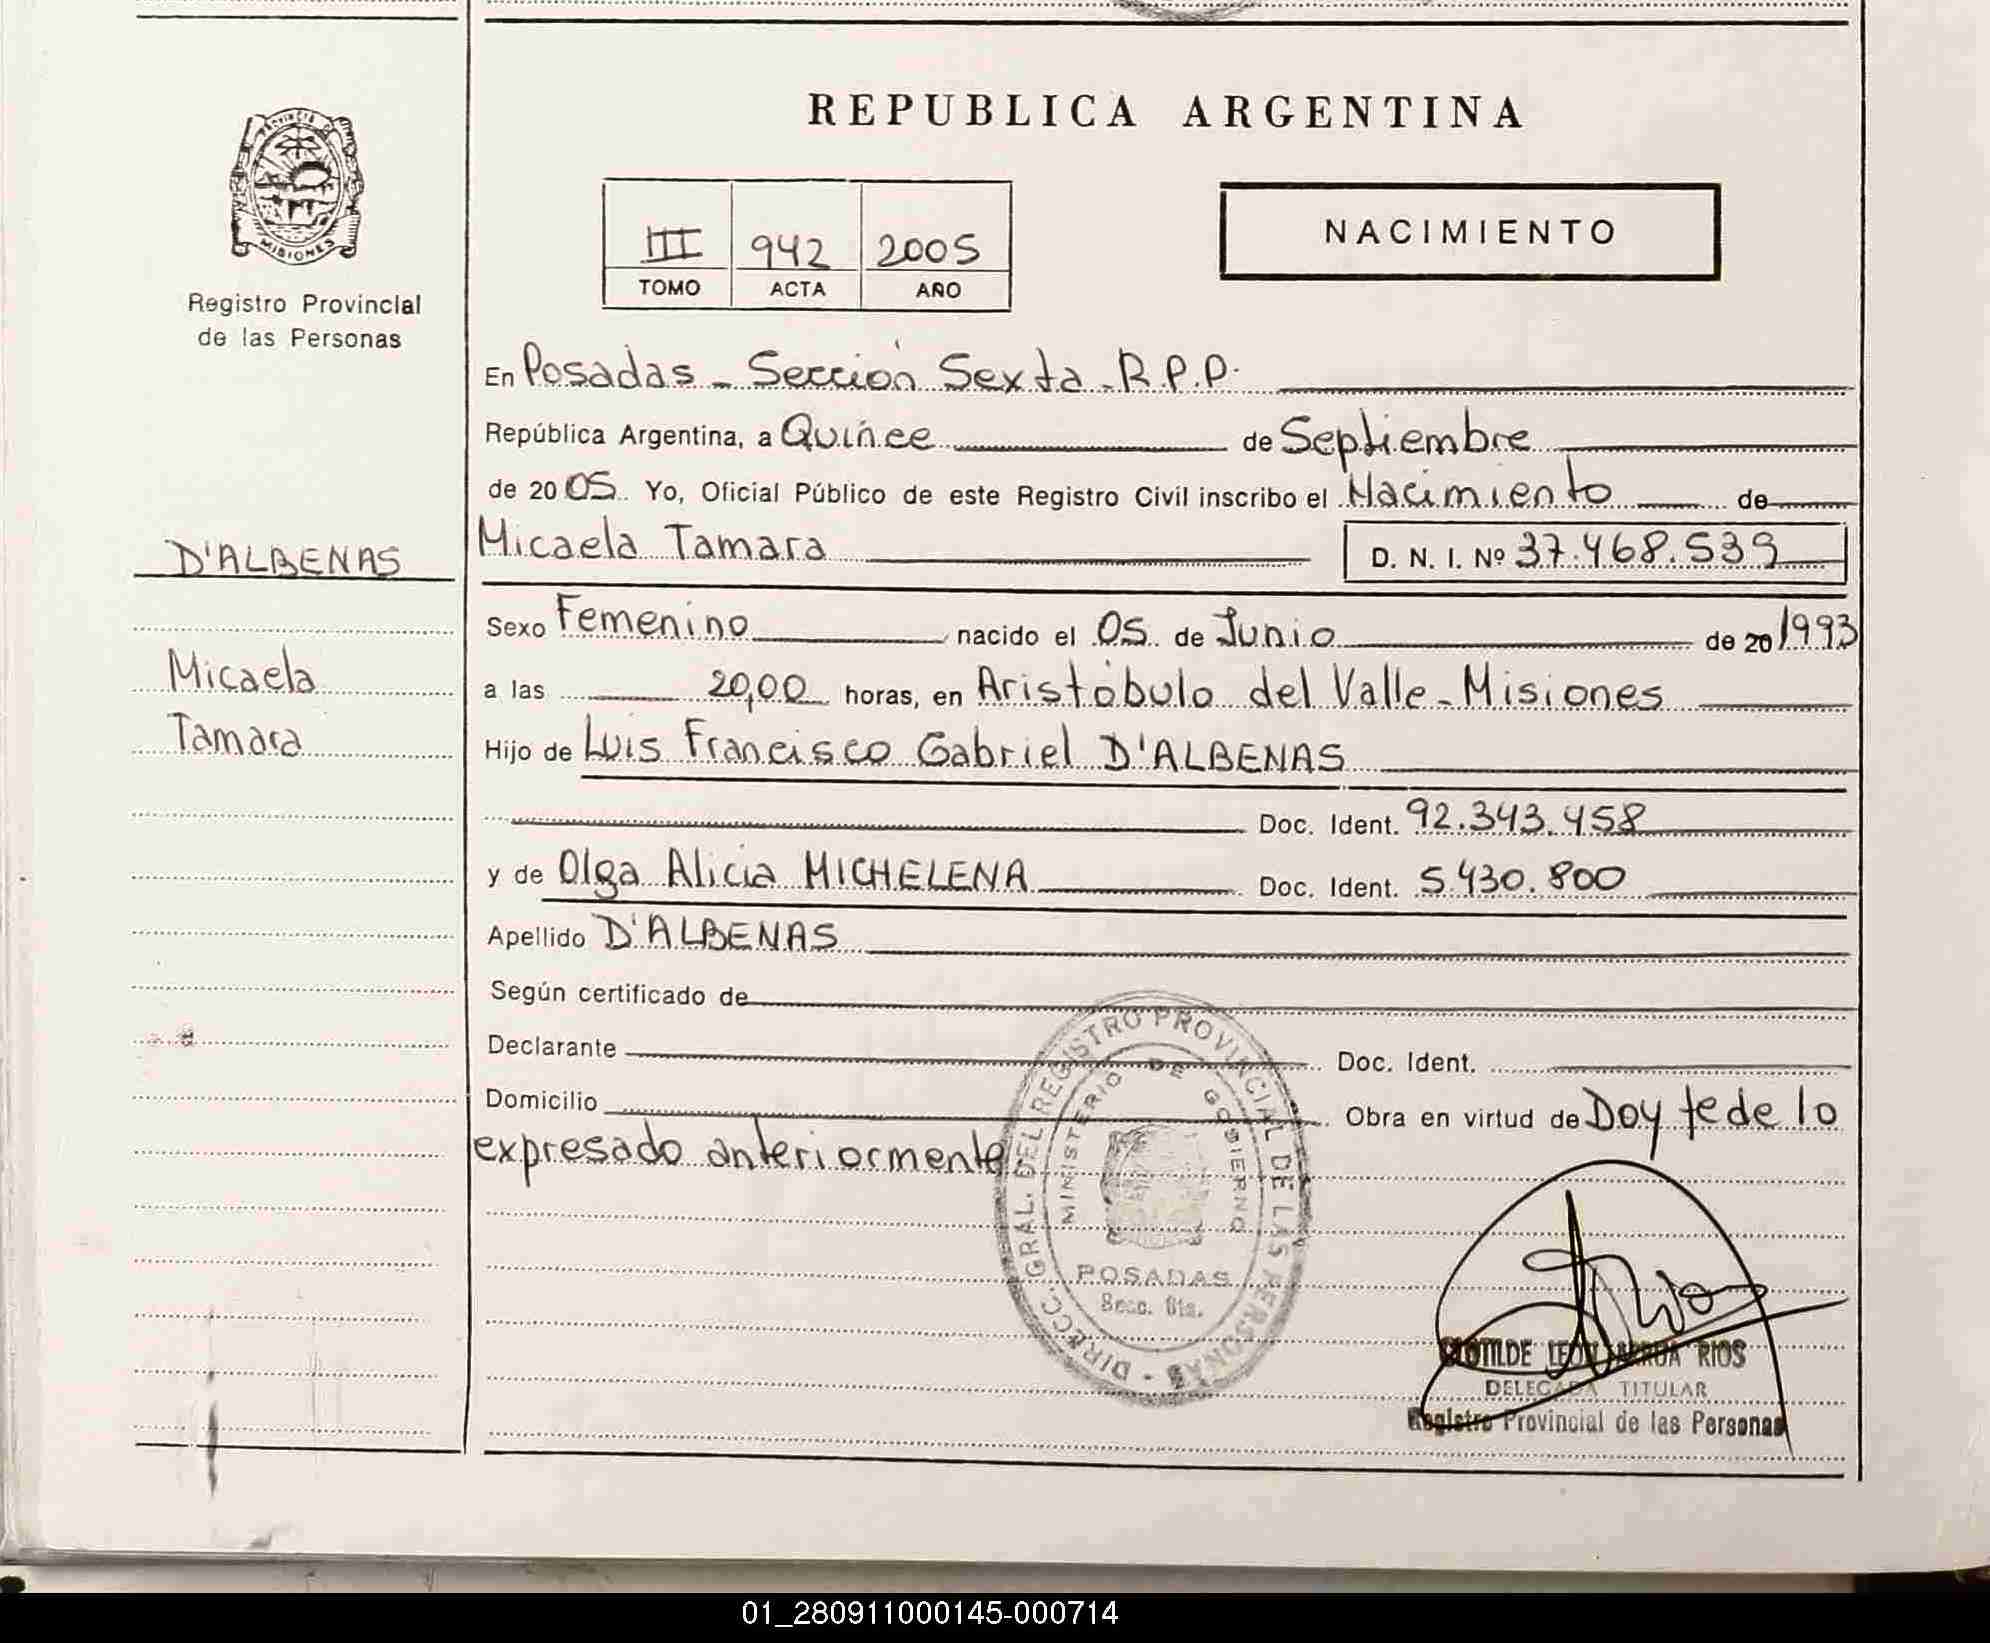 REPUBLICA ARGENTINA
PROVINCIA DE
MISIONES
Registro Provincial
de las Personas
III 942 2005
TOMO ACTA AÑO
NACIMIENTO
En Posadas - Sección Sexta - R.P.P.
República Argentina, a Quince de Septiembre
de 2005 Yo, Oficial Público de este Registro Civil inscribo el Nacimiento de
Micaela Tamara D. N. I. Nº 37.468.539
D'ALBENAS
Sexo Femenino nacido el 05 de Junio de 20 1993
Micaela
a las 20,00 horas, en Aristóbulo del Valle - Misiones
Tamara
Hijo de Luis Francisco Gabriel D'ALBENAS
Doc. Ident. 92.343.458
y de Olga Alicia MICHELENA Doc. Ident. 5.430.800
Apellido D'ALBENAS
Según certificado de
Declarante Doc. Ident.
Domicilio Obra en virtud de Doy fe de lo
expresado anteriormente
DIRECC. GRAL. DEL REGISTRO PROVINCIAL DE LAS PERSONAS
MINISTERIO DE GOBIERNO
POSADAS
Secc. 6ta.
CLOTILDE LEON ARRUA RIOS
DELEGADA TITULAR
Registro Provincial de las Personas
01_280911000145-000714